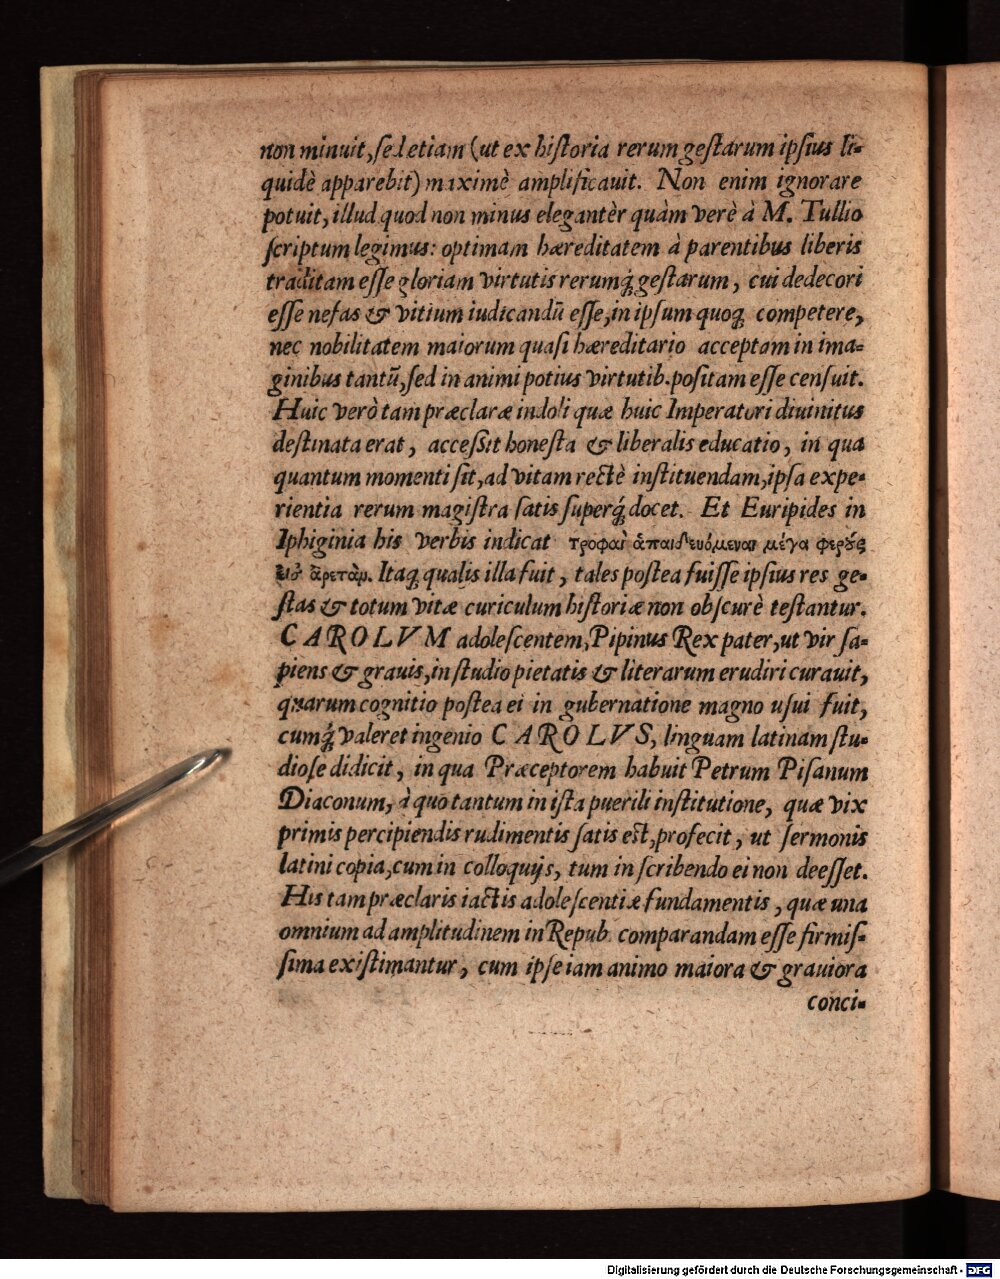 non minuit, sed etiam (ut ex hiſtoria rerum geſtarum ipſius li-
quidè apparebit) maximè amplificauit. Non enim ignorare
potuit, illud quod non minus elegantèr quàm verè à M. Tullio
ſcriptum legimus: optimam hæreditatem à parentibus liberis
traditam eſſe gloriam virtutis rerumq́; geſtarum, cui dedecori
eſſe nefas & vitium iudicandũ eſſe, in ipſum quoq; competere,
nec nobilitatem maiorum quaſi hæreditario acceptam in ima-
ginibus tantũ, ſed in animi potius virtutib. poſitam eſſe cenſuit.
Huic verò tam præclaræ indoli quæ huic Imperatori diuinitus
deſtinata erat, acceſsit honeſta & liberalis educatio, in qua
quantum momenti ſit, ad vitam rectè inſtituendam, ipſa expe-
rientia rerum magiſtra ſatis ſuperq́; docet. Et Euripides in
Iphiginia his verbis indicat τροφαὶ ἁπαιδευόμεναι μέγα φερούς
ἀρετὰν. Itaq; qualis illa fuit, tales poſtea fuiſſe ipſius res ge-
ſtas & totum vitæ curiculum hiſtoriæ non obſcurè teſtantur.
CAROLVM adoleſcentem, Pipinus Rex pater, ut vir ſa-
piens & grauis, in ſtudio pietatis & literarum erudiri curauit,
quarum cognitio poſtea ei in gubernatione magno uſui fuit,
cumq́; valeret ingenio CAROLVS, linguam latinam ſtu-
dioſe didicit, in qua Præceptorem habuit Petrum Piſanum
Diaconum, à quo tantum in iſta puerili inſtitutione, quæ vix
primis percipiendis rudimentis ſatis eſt, profecit, ut ſermonis
latini copia, cum in colloquijs, tum in ſcribendo ei non deeſſet.
His tam præclaris iactis adoleſcentiæ fundamentis, quæ una
omnium ad amplitudinem in Repub. comparandam eſſe firmiſ-
ſima exiſtimantur, cum ipſe iam animo maiora & grauiora
conci-
Digitalisierung gefördert durch die Deutsche Forschungsgemeinschaft - DFG